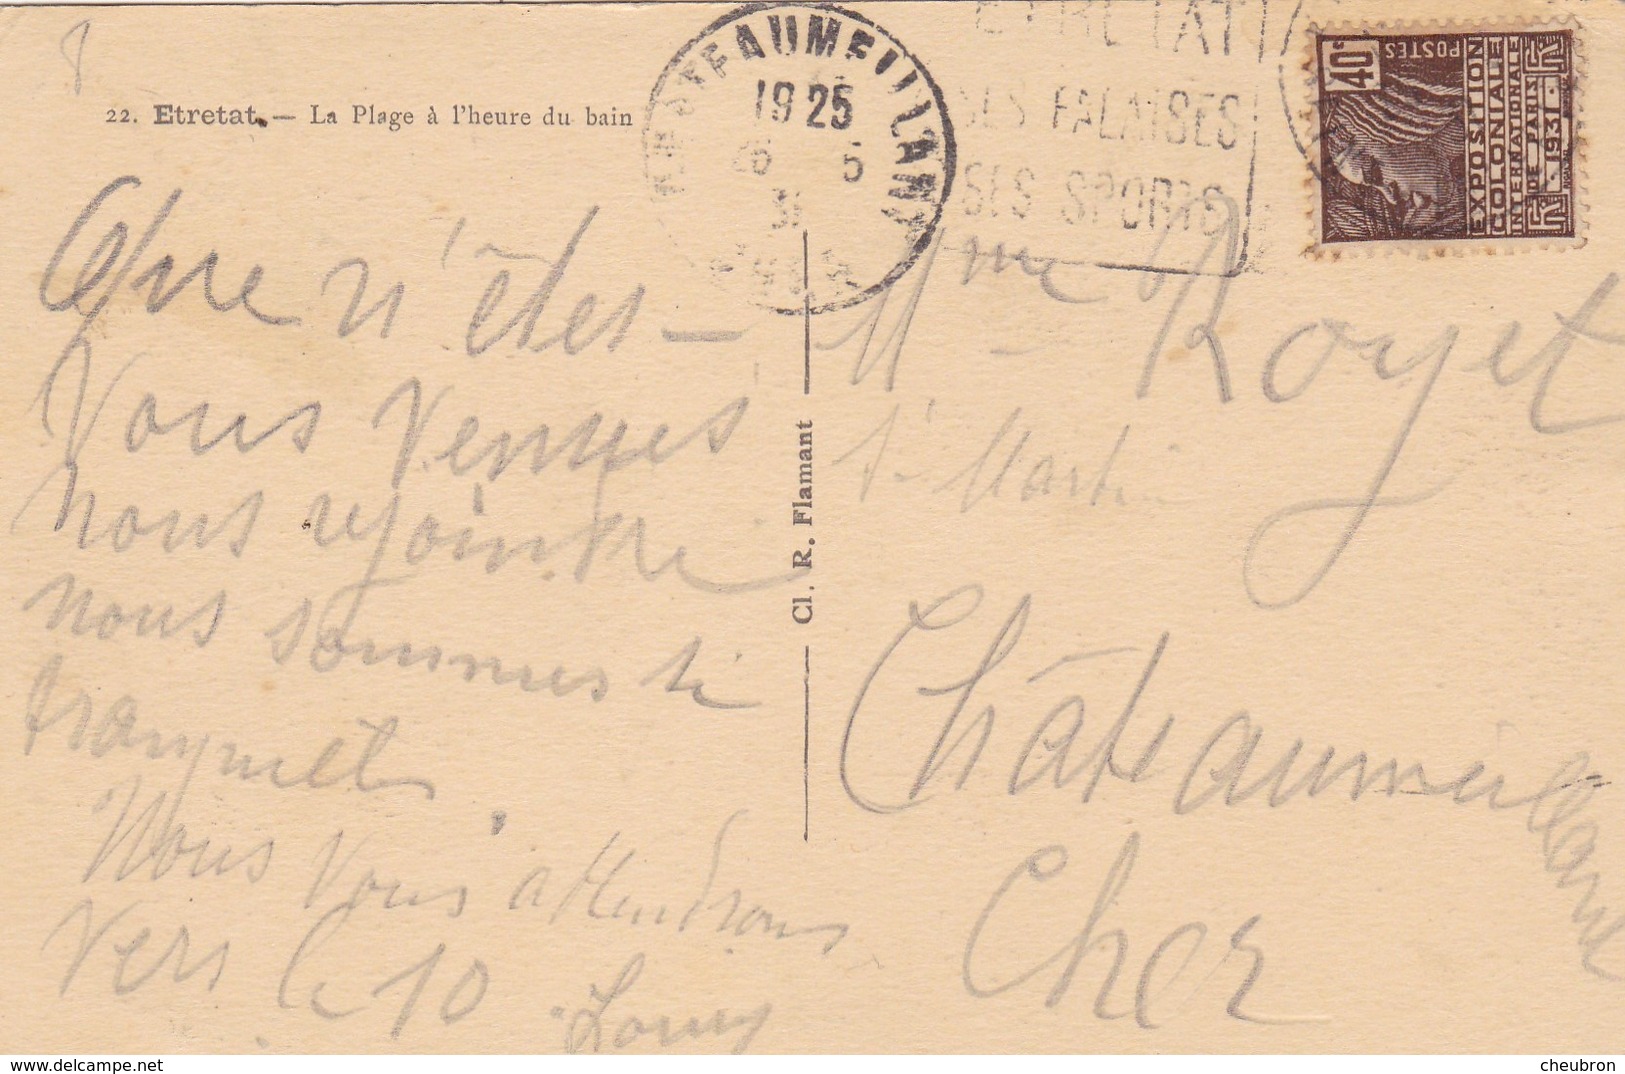 22. Etretat. — La Plage à l'heure du bain
Que n'êtes-
Vous Venues
nous rejoindre
nous sommes si
tranquilles
Nous Vous attendrons
Vers le 10
Cl. R. Flamant
CHATEAUMEILLANT
19 25
26 5
31
ETRETAT
SES FALAISES
SES SPORTS
40c
POSTES
EXPOSITION
COLONIALE
INTERNATIONALE
DE PARIS
1931
RF
Mme Royet
St Martin
Châteaumeillant
Cher
cheubron